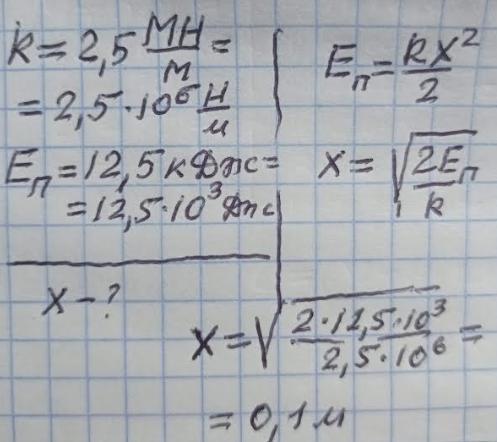 k = 2,5 МН/м =
= 2,5·10⁶ Н/м
Eₚ = 12,5 кДж =
= 12,5·10³ Дж
x - ?
Eₚ = kx²/2
x = √(2Eₚ/k)
x = √(2·12,5·10³/2,5·10⁶) =
= 0,1 м